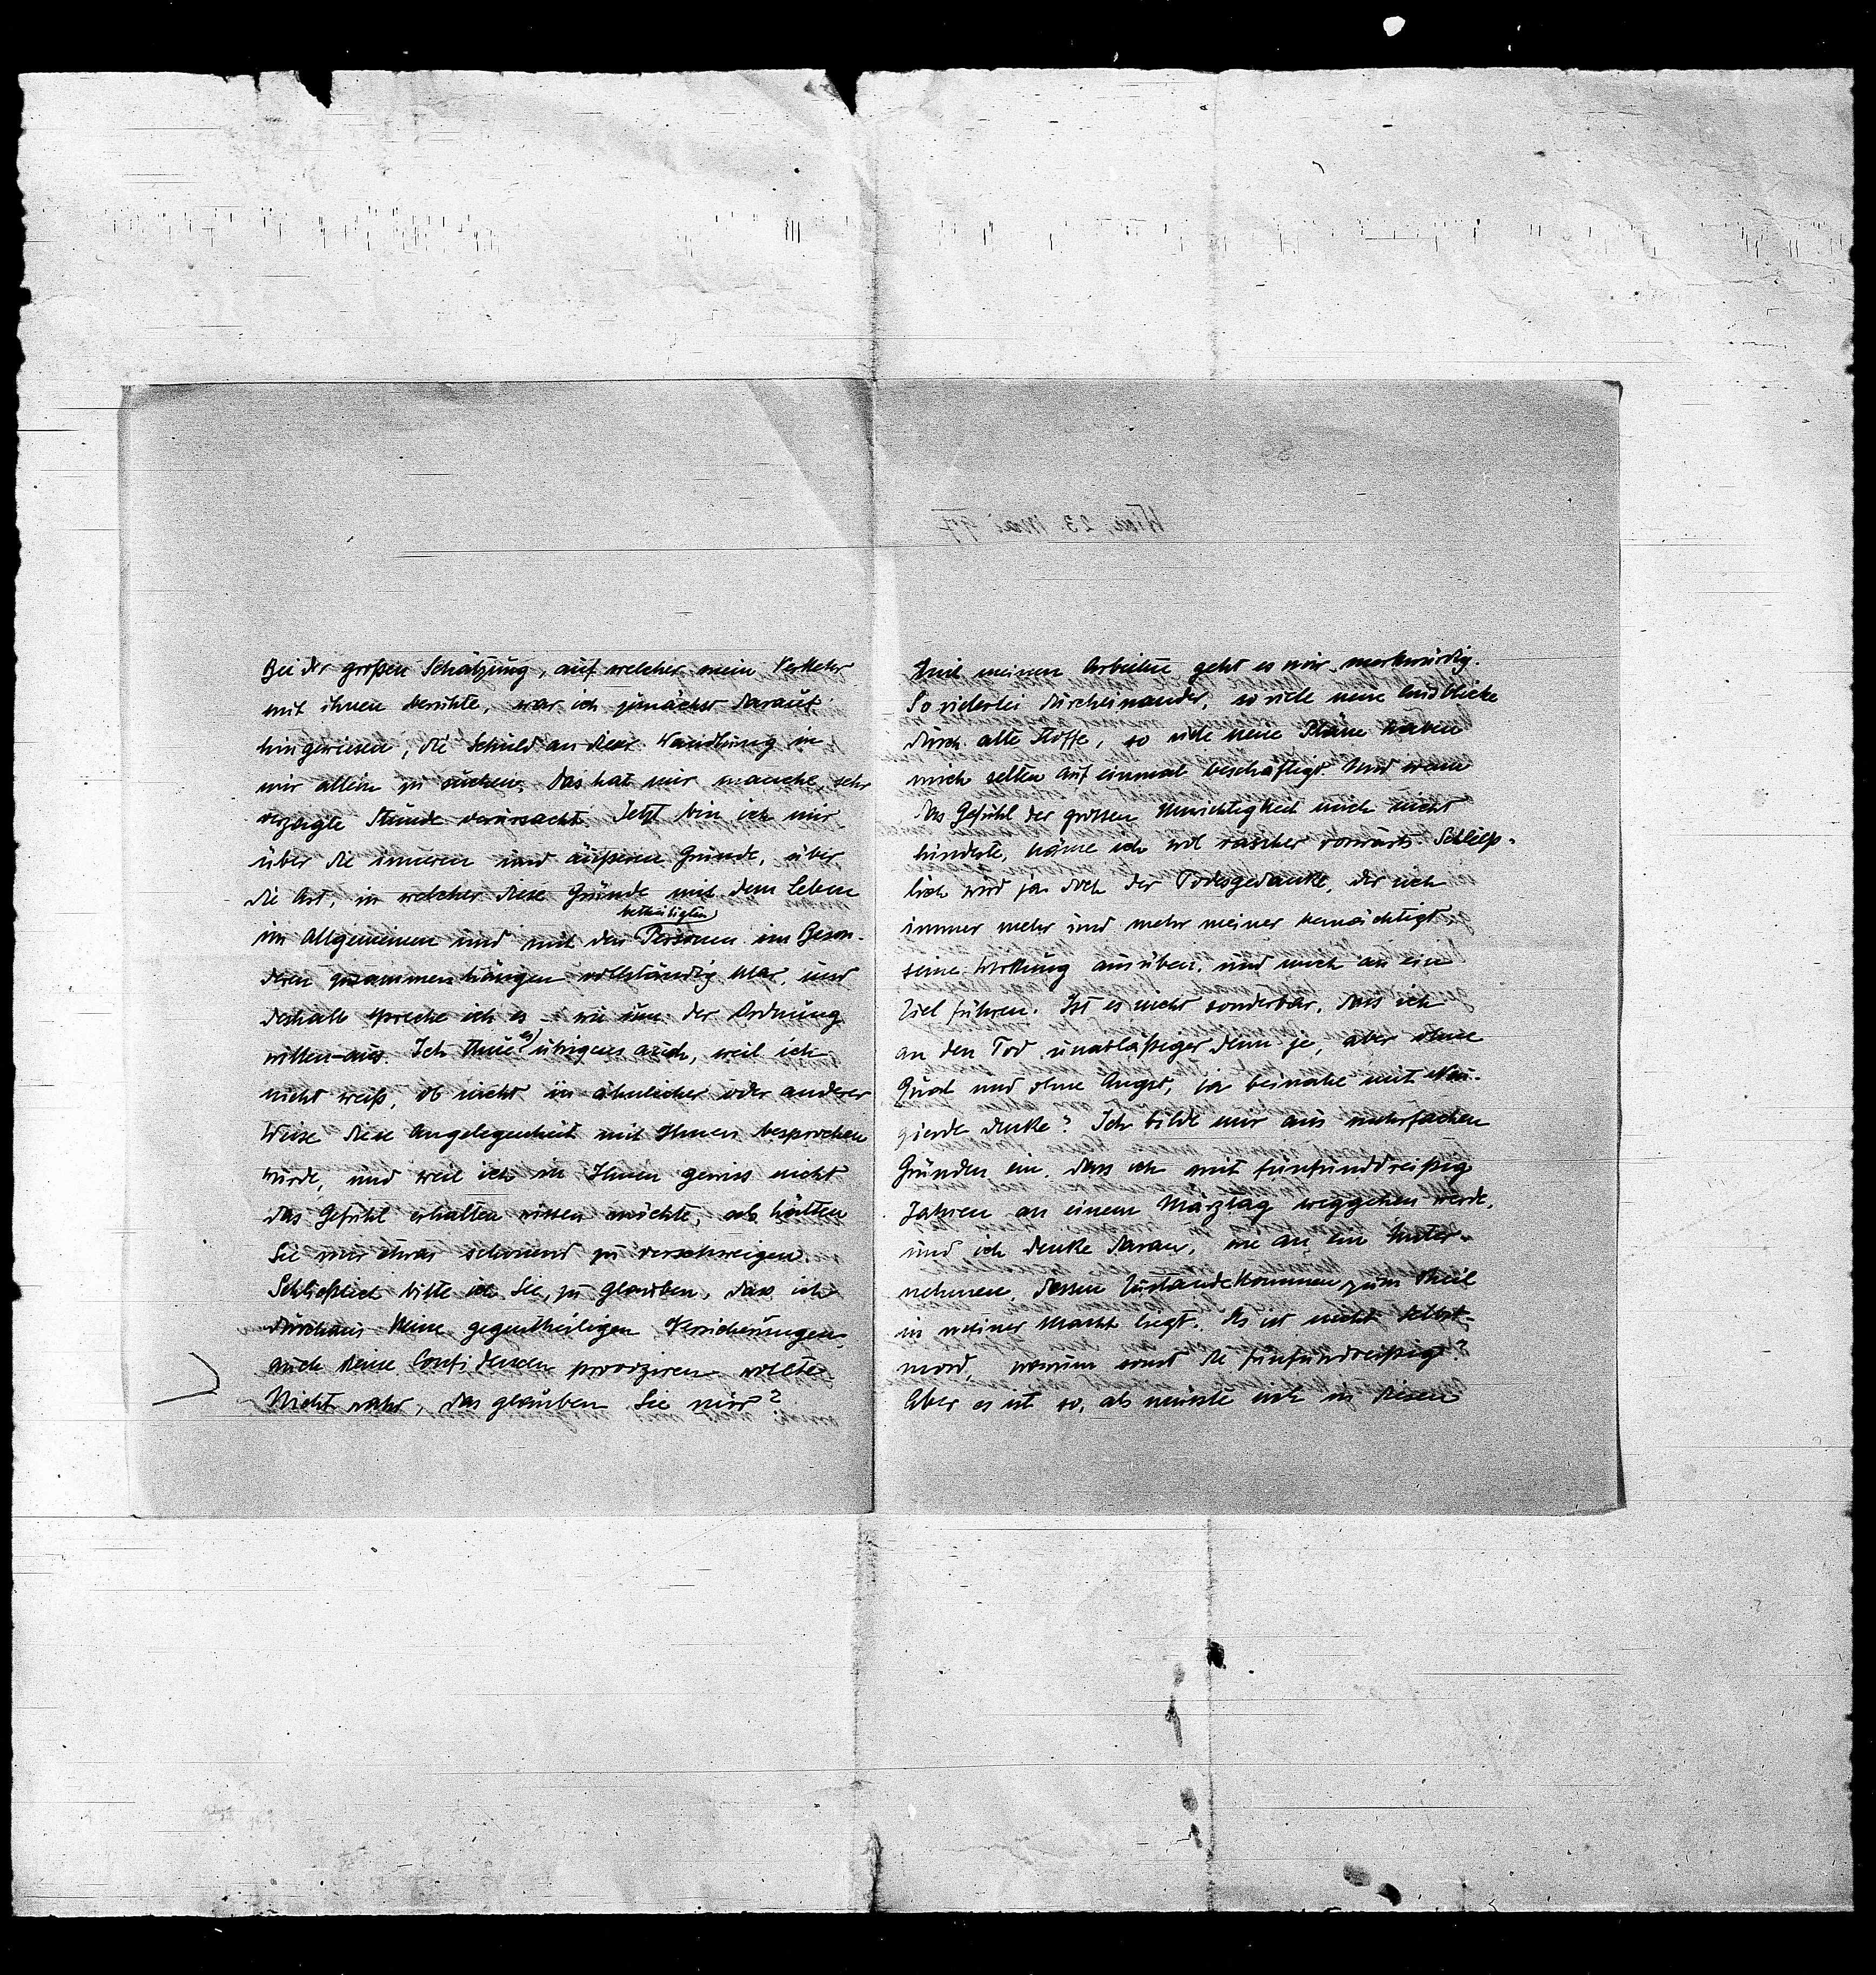 Bei der großen Schätzung, auf welcher mein Verkehr
mit ihnen beruhte, war ich zunächst darauf
hingewiesen, die Schuld an dieser Wandlung in
mir allein zu suchen. Das hat mir manche, sehr
verzagte Stunde verursacht. Jetzt bin ich mir
über die inneren und äußeren Gründe, über
die Art, in welcher diese Gründe mit dem Leben
im Allgemeinen und mit den betheiligten Personen im Beson-
deren zusammenhängen vollständig klar, und
deshalb spreche ich es – wie um der Ordnung
willen – aus. Ich thue es übrigens auch, weil ich
nicht weiß, ob nicht in ähnlicher oder anderer
Weise diese Angelegenheit mit Ihnen besprochen
wurde, und weil ich in Ihnen gewiss nicht
das Gefühl erhalten wissen möchte, als hätten
Sie mir etwas schonend zu verschweigen.
Schließlich bitte ich Sie, zu glauben, dass ich
durchaus keine gegentheiligen Versicherungen,
auch keine Confidencen provoziren wollte.
Nicht wahr, das glauben Sie mir?
Mit meinen Arbeiten geht es mir merkwürdig.
So vielerlei durcheinander, so viele neue Ausblicke
durch alte Stoffe, so viele neue Pläne haben
mich selten auf einmal beschäftigt. Und wenn
das Gefühl der großen Unwichtigkeit mich nicht
hinderte, käme ich wol rascher vorwärts. Schließ-
lich wird ja doch der Todesgedanke, der sich
immer mehr und mehr meiner bemächtigt
seine Wirkung ausüben, und mich an ein
Ziel führen. Ist es nicht sonderbar, dass ich
an den Tod unabläßiger denn je, aber ohne
Qual und ohne Angst, ja beinahe mit Neu-
gierde denke? Ich bilde mir aus mehrfachen
Gründen ein, dass ich mit fünfunddreißig
Jahren an einem Märztag weggehen werde,
und ich denke daran, wie an ein Unter-
nehmen, dessen Zustandekommen zum Theil
in meiner Macht liegt. Es ist nicht Selbst-
mord, warum sonst die fünfunddreißig?
Aber es ist so, als müsste ich in diesen
Wien, 23. Mai 97